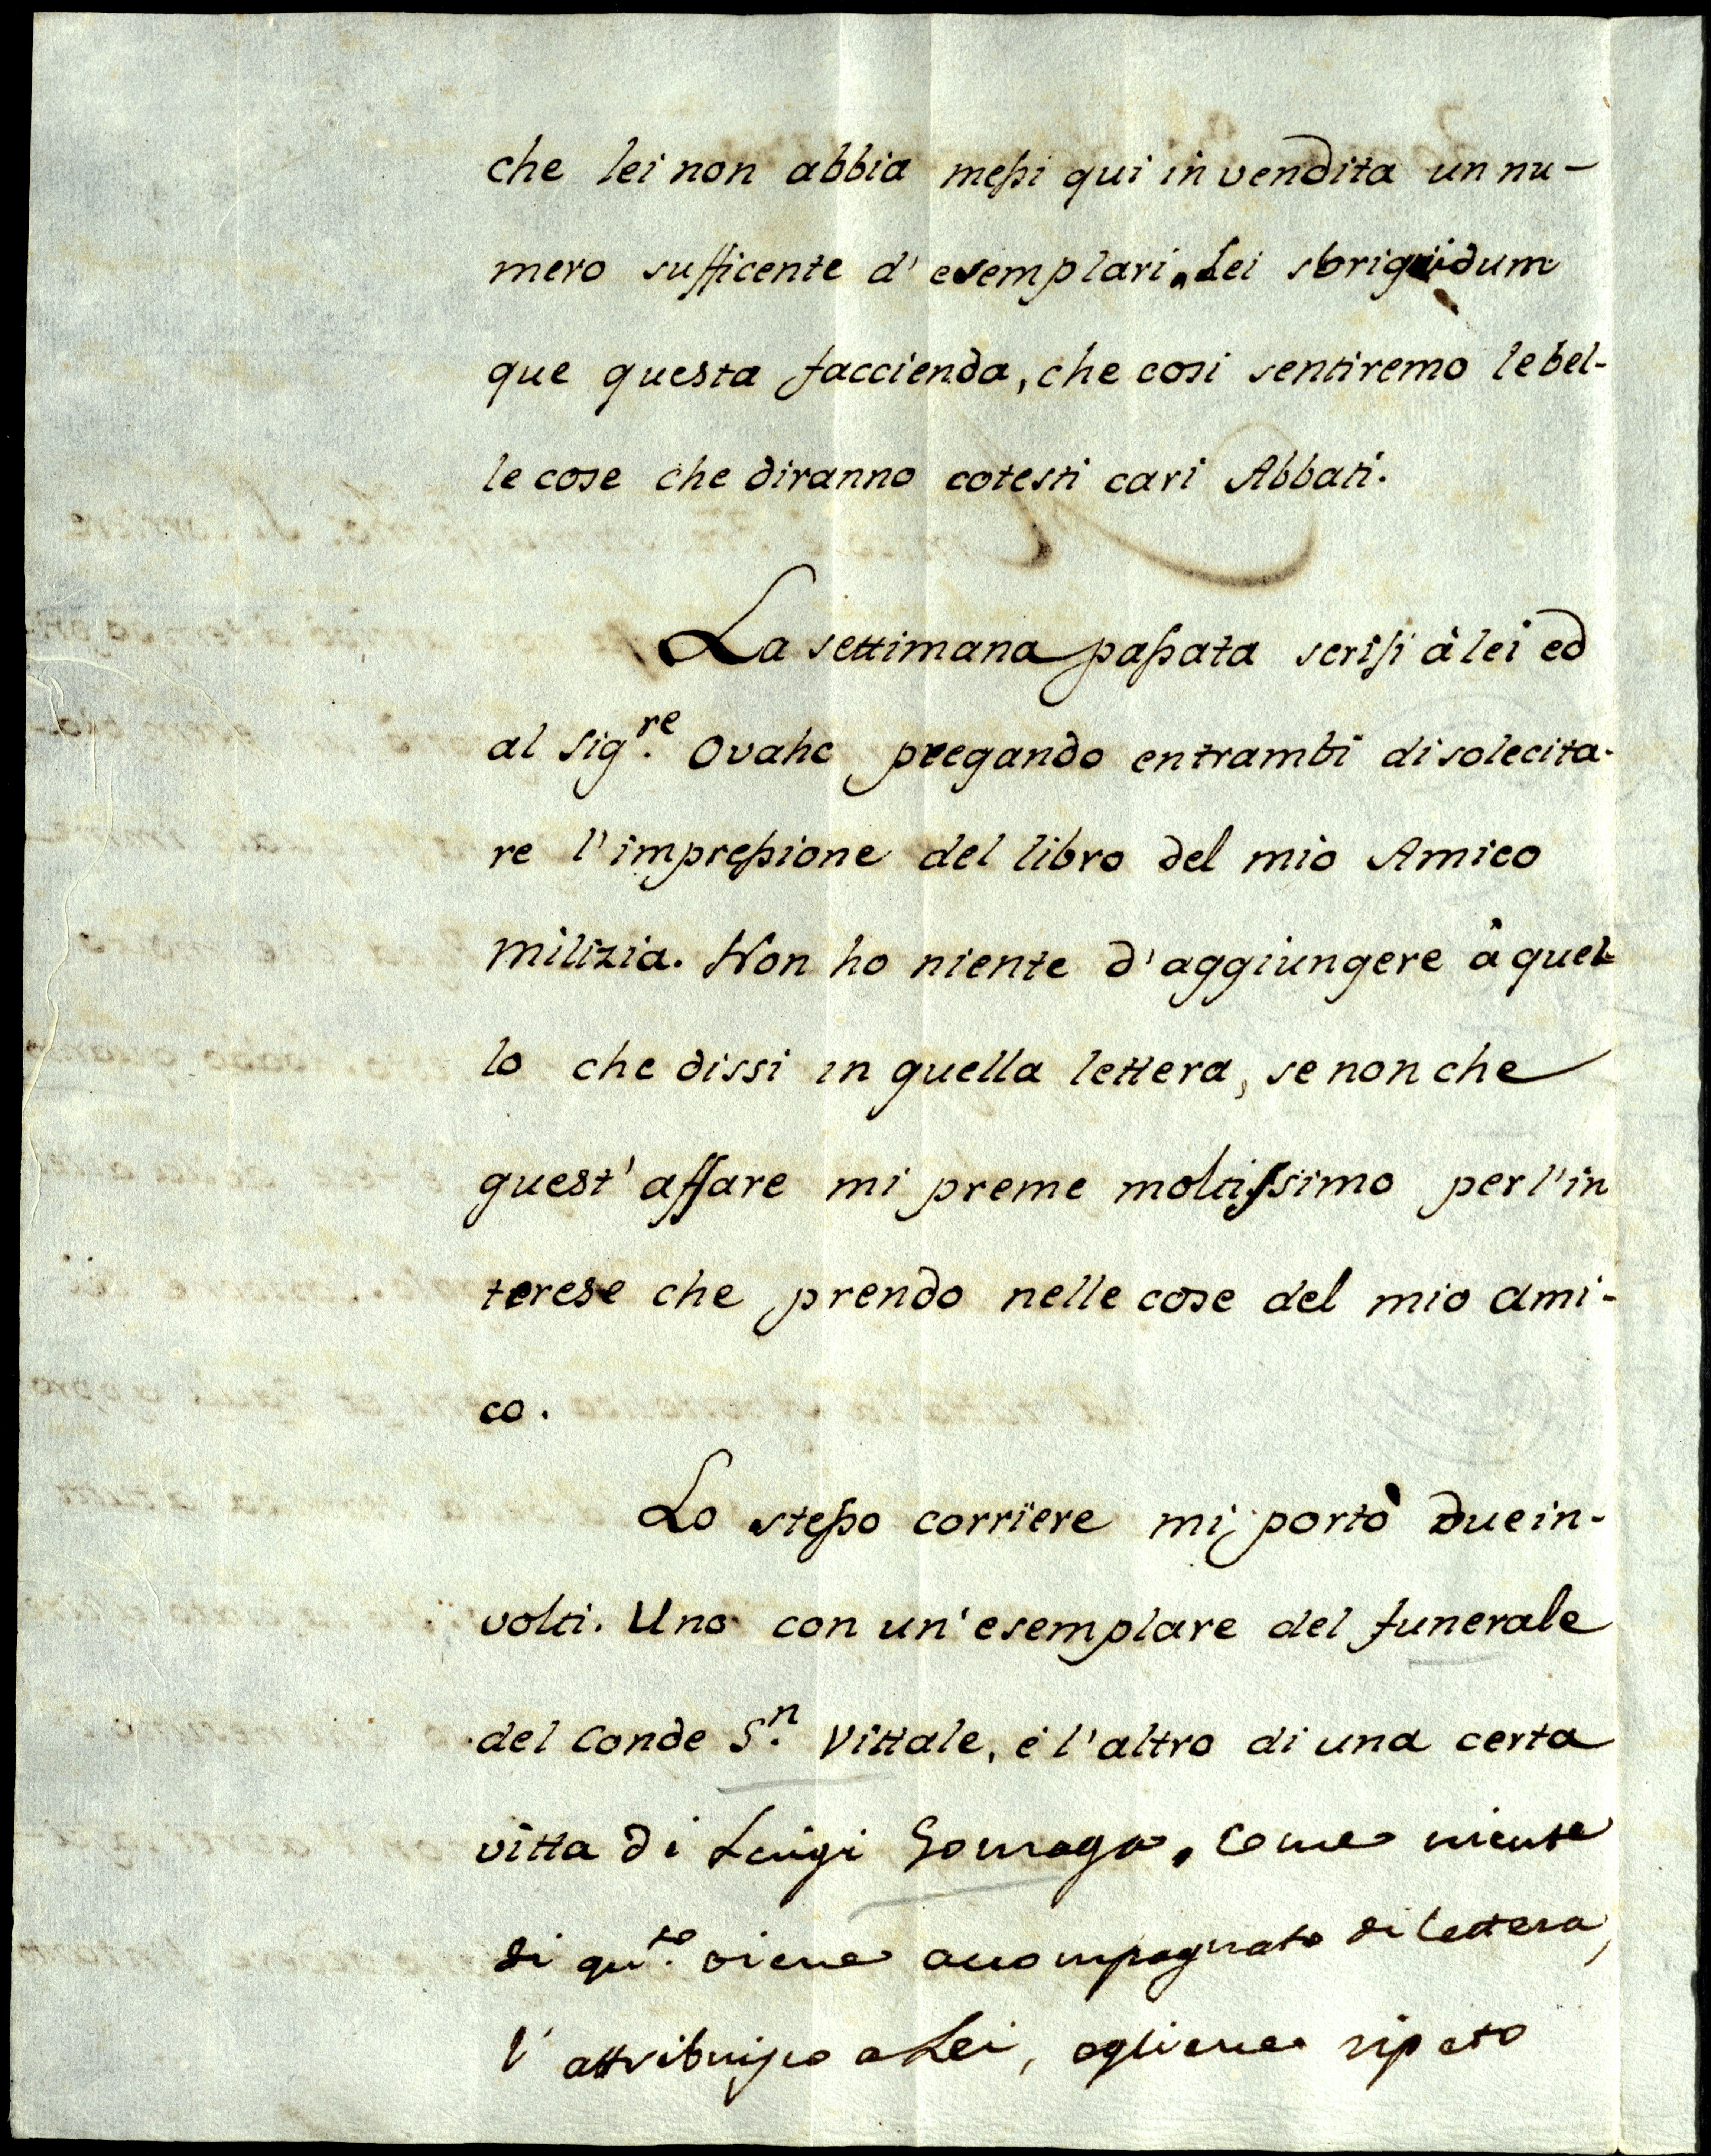 che lei non abbia messi qui in vendita un nu-
mero sufficente d' esemplari. Lei sbrighi dum
que questa faccienda, che cosi sentiremo le bel-
le cose che diranno cotesti cari Abbati.
La settimana passata scrissi à lei ed
al Sig.re Ovahe pregando entrambi di solecita-
re l'impressione del libro del mio Amico
Milizia. Non ho niente d'aggiungere à quel-
lo che dissi in quella lettera, se non che
quest' affare mi preme moltissimo per l'in
terese che prendo nelle cose del mio ami-
co.
Lo stesso corriere mi portò due in-
volti. Uno con un'esemplare del funerale
del Conde S.n Vittale, e l'altro di una certa
vitta di Luigi Gonzaga. Come niente
di qu.to viene accompagnato di lettera,
l' attribuisco a Lei, e gliene ripeto